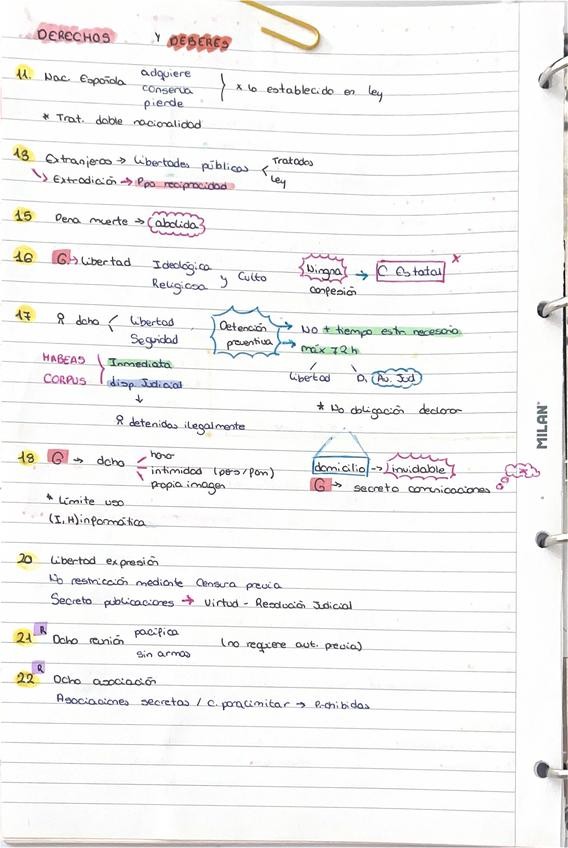 DERECHOS Y DEBERES
11. Nac. Española adquiere
conserva
pierde
x lo establecido en ley
* Trat. doble nacionalidad
13 Extranjeros → Libertades públicos Tratados
Ley
↳ Extradición → Ppo reciprocidad
15 Pena muerte → abolida
16 G → Libertad Ideológica
Religiosa
y Culto
Ninguna
confesión
→ C. Estatal x
17 R dcho Libertad
Seguridad
Detención
preventiva
→ No + tiempo estr. necesario
→ máx 72 h
Libertad D. Au. Jud
* No obligación declarar
HABEAS
CORPUS
Inmediata
disp. Judicial
↓
R detenidas ilegalmente
18 G → dcho honor
intimidad (pers/fam)
propia imagen
domicilio → inviolable
G → secreto comunicaciones
* Límite uso
(I, H) informática
20 Libertad expresión
No restricción mediante censura previa
Secreto publicaciones → Virtud - Resolución Judicial
21 R Dcho reunión pacífica
sin armas
(no requiere aut. previa)
22 R Dcho asociación
Asociaciones secretas / C. paramilitar → Prohibidas
MILAN